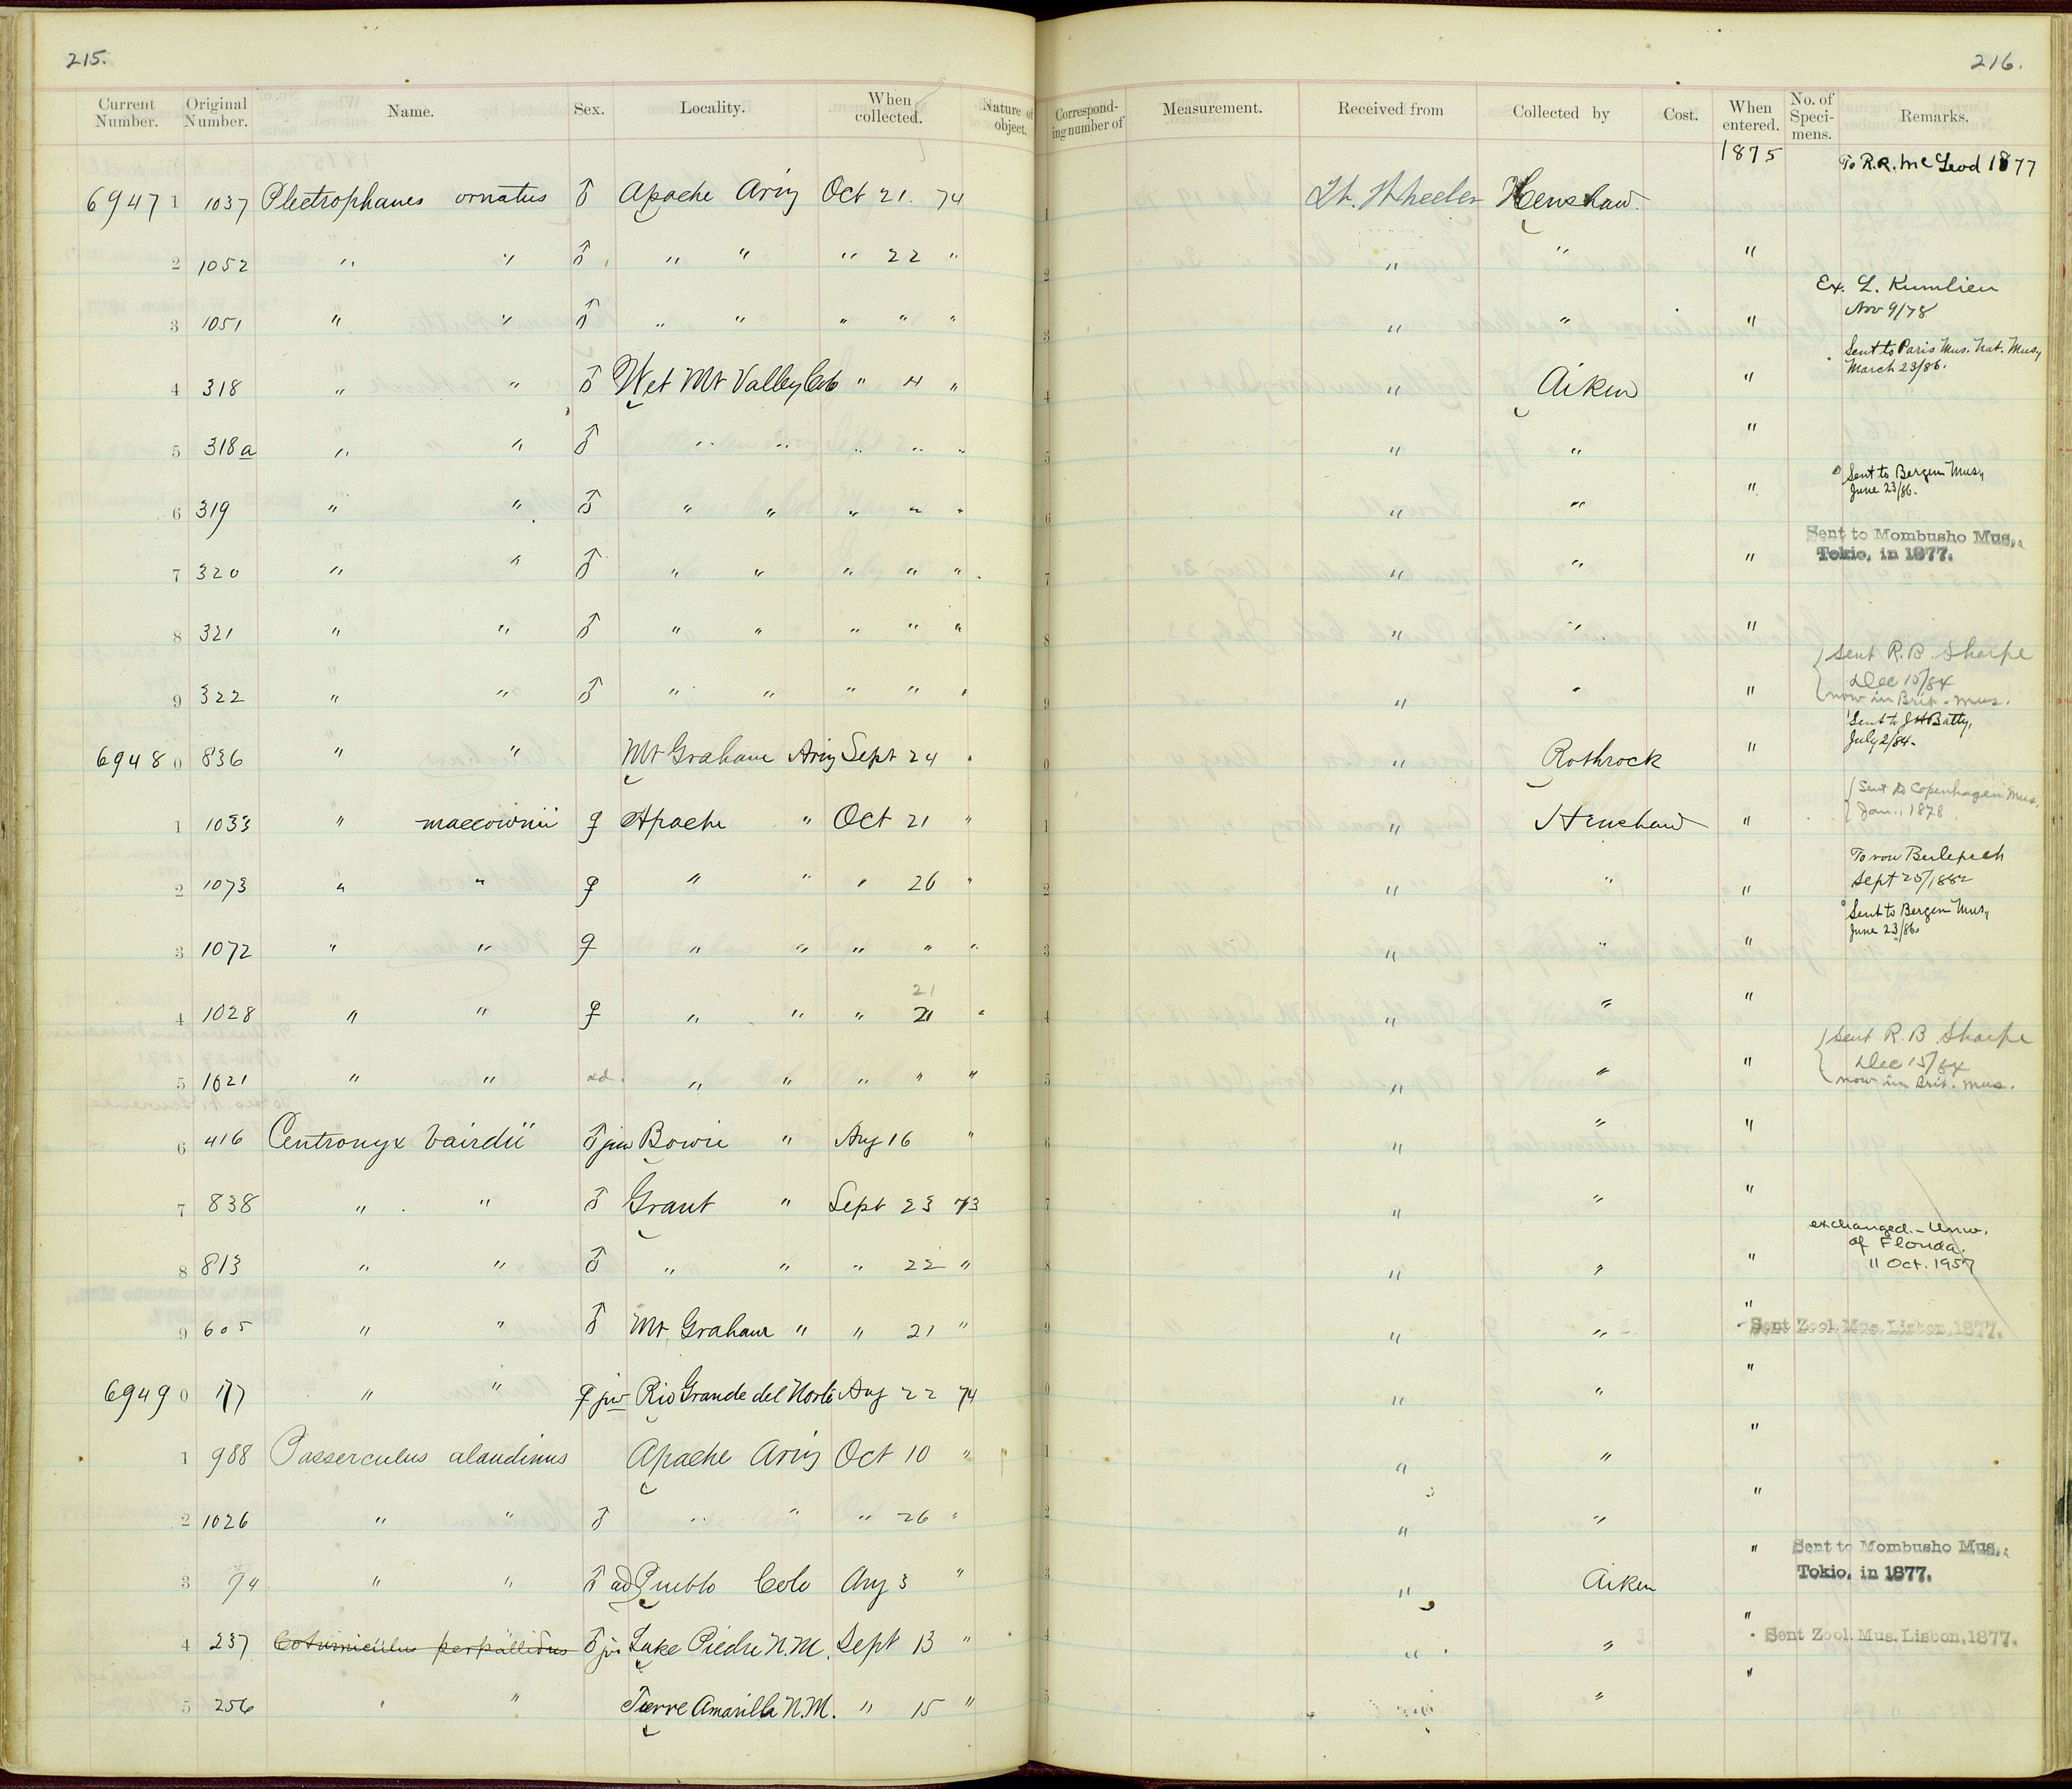 215.
216.
Current Number. Original Number. Name. Sex. Locality. When collected. Nature of object. Corresponding number of Measurement. Received from Collected by Cost. When entered. No. of Specimens. Remarks.
1875 To R.R. McLeod 1877
6947 1 1037 Plectrophanes ornatus ♂ Apache Ariz Oct 21. 74 1 Lt. Wheeler Henshaw.
2 1052 " " ♂ " " " 22 " 2 " " "
Ex. L. Kumlien
Nov 9/78
3 1051 " " ♂ " " " " " 3 " " "
Sent to Paris Mus. Nat. Mus,
March 23/86.
4 318 " " ♂ Wet Mt Valley Colo " 4 " 4 " Aiken "
5 318a " " ♂ " " " " " 5 " " "
Sent to Bergen Mus,
June 23/86.
6 319 " " ♂ " " " " " 6 " " "
Sent to Mombusho Mus.
Tokio, in 1877.
7 320 " " ♂ " " " " " 7 " " "
8 321 " " ♂ " " " " " 8 " " "
Sent R. B. Sharpe
Dec 15/84
now in Brit. Mus.
9 322 " " ♂ " " " " " 9 " " "
Sent to J H Batty,
July 2/84.
6948 0 836 " " Mt Graham Ariz Sept 24 " 0 " Rothrock "
Sent to Copenhagen Mus.
Jan., 1878.
1 1033 " maccownii ♀ Apache " Oct 21 " 1 " Henshaw "
To von Berlepsch
Sept 25/1882
2 1073 " " ♀ " " " 26 " 2 " " "
Sent to Bergen Mus,
June 23/86
3 1072 " " ♀ " " " " " 3 " " "
21
4 1028 " " ♀ " " " 21 " 4 " " "
Sent R. B. Sharpe
Dec 15/84
now in Brit. Mus.
5 1021 " " ad. " " " " " 5 " " "
6 416 Centronyx bairdii ♂ juv Bowie " Aug 16 " 6 " " "
7 838 " " ♂ Grant " Sept 23 73 7 " " "
exchanged - Univ.
of Florida.
11 Oct. 1957
8 813 " " ♂ " " " 22 " 8 " " "
9 605 " " ♂ Mt. Graham " " 21 " 9 " " " Sent Zool. Mus. Lisbon, 1877.
6949 0 177 " " ♀ juv Rio Grande del Norte Aug 22 74 0 " " "
1 988 Passerculus alaudinus Apache Ariz Oct 10 " 1 " " "
2 1026 " " ♂ " " " 26 " 2 " " "
Sent to Mombusho Mus.
Tokio, in 1877.
3 74 " " ♂ ad Pueblo Colo Aug 3 " 3 " Aiken "
4 237 Coturniculus perpallidus ♂ juv Lake Piedre N.M. Sept 13 " 4 " " " Sent Zool. Mus. Lisbon, 1877.
5 256 " " Tierre Amarilla N.M. " 15 " 5 " "